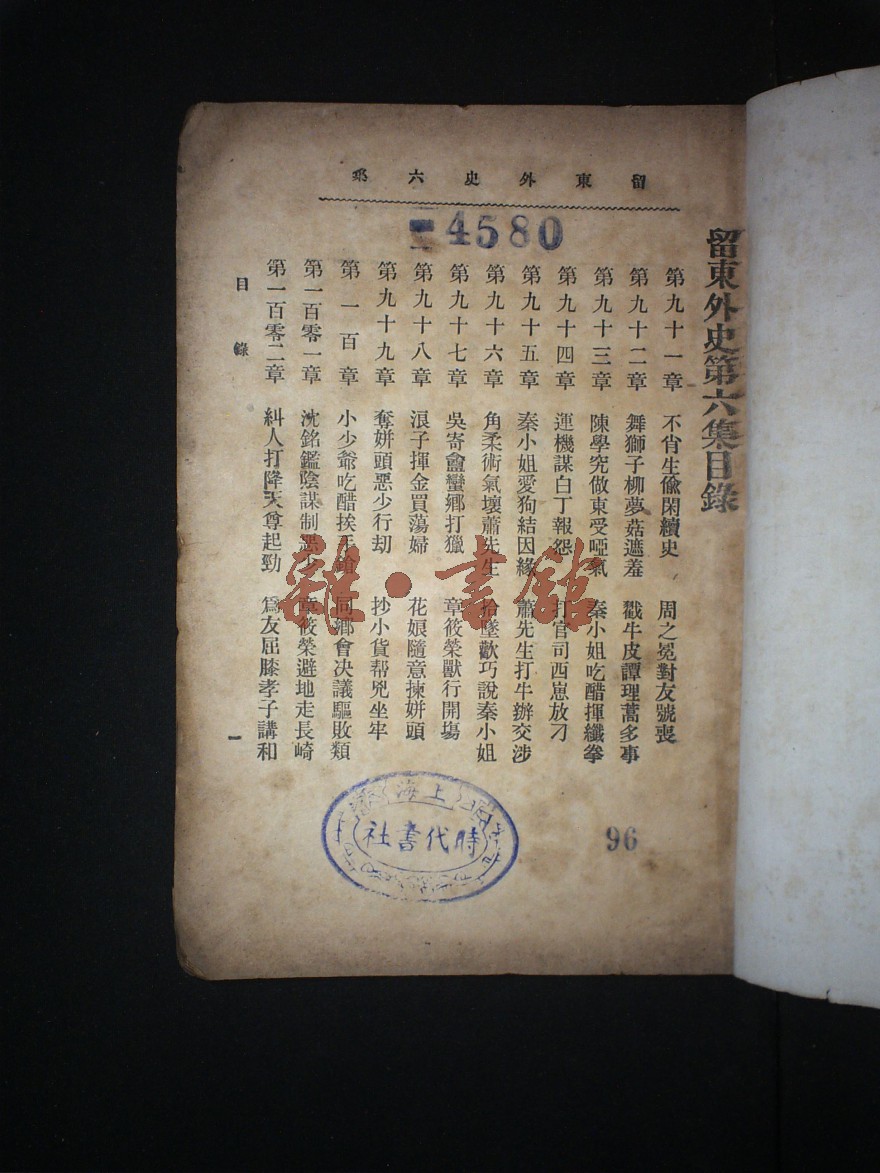 留東外史六集
4580
留東外史第六集目錄
第九十一章 不肖生偸閑續史 周之冕對友號喪
第九十二章 舞獅子柳夢菇遮羞 戳牛皮譚理蒿多事
第九十三章 陳學究做東受啞氣 秦小姐吃醋揮纖拳
第九十四章 運機謀白丁報怨 打官司西崽放刁
第九十五章 秦小姐愛狗結因緣 蕭先生打牛辦交涉
第九十六章 角柔術氣壞蕭先生 拾墜歡巧說秦小姐
第九十七章 吳寄盦蠻鄉打獵 章筱榮獸行開塲
第九十八章 浪子揮金買蕩婦 花娘隨意揀姘頭
第九十九章 奪姘頭惡少行刼 抄小貨帮兇坐牢
第一百章 小少爺吃醋挨手鎗 同鄉會决議驅敗類
第一百零一章 沈銘鑑陰謀制惡少 章筱榮避地走長崎
第一百零二章 糾人打降天尊起勁 爲友屈膝孝子講和
目錄
一
雜·書館
上海
時代書社
96